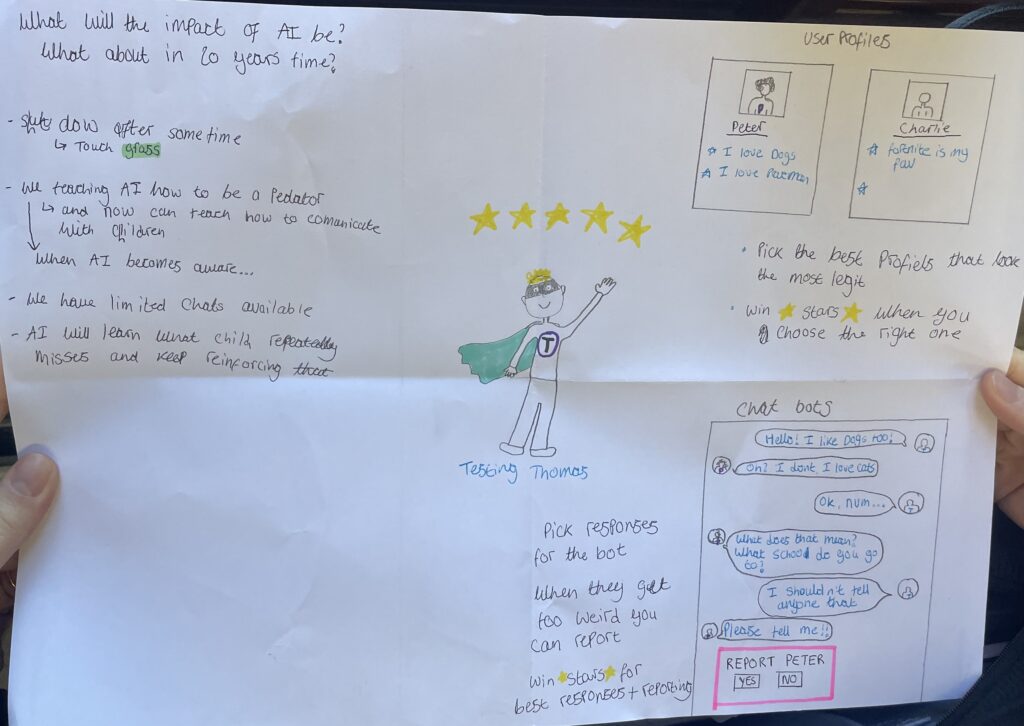 What will the impact of AI be?
What about in 20 years time?
- shut dow after sometime
↳ Touch grass
- We teaching AI how to be a Pedator
↳ and now can teach how to comunicate
with children
When AI becomes aware...
- We have limited chats available
- AI will learn what child repeatedly
misses and keep reinforcing that
T
Testing Thomas
User Profiles
Peter
☆ I love Dogs
☆ I love Pacman
Charlie
☆ fortnite is my
fav
☆
• Pick the best Profiels that look
the most legit
• Win ★ stars ★ when you
choose the right one
Pick responses
for the bot
When they get
too weird you
can report
Win ★stars★ for
best responses + reporting
Chat bots
Hello! I like Dogs too!
Oh? I dont, I love cats
Ok, num...
What does that mean?
What school do you go
to?
I shouldn't tell
anyone that
Please tell me!!
REPORT PETER
YES NO